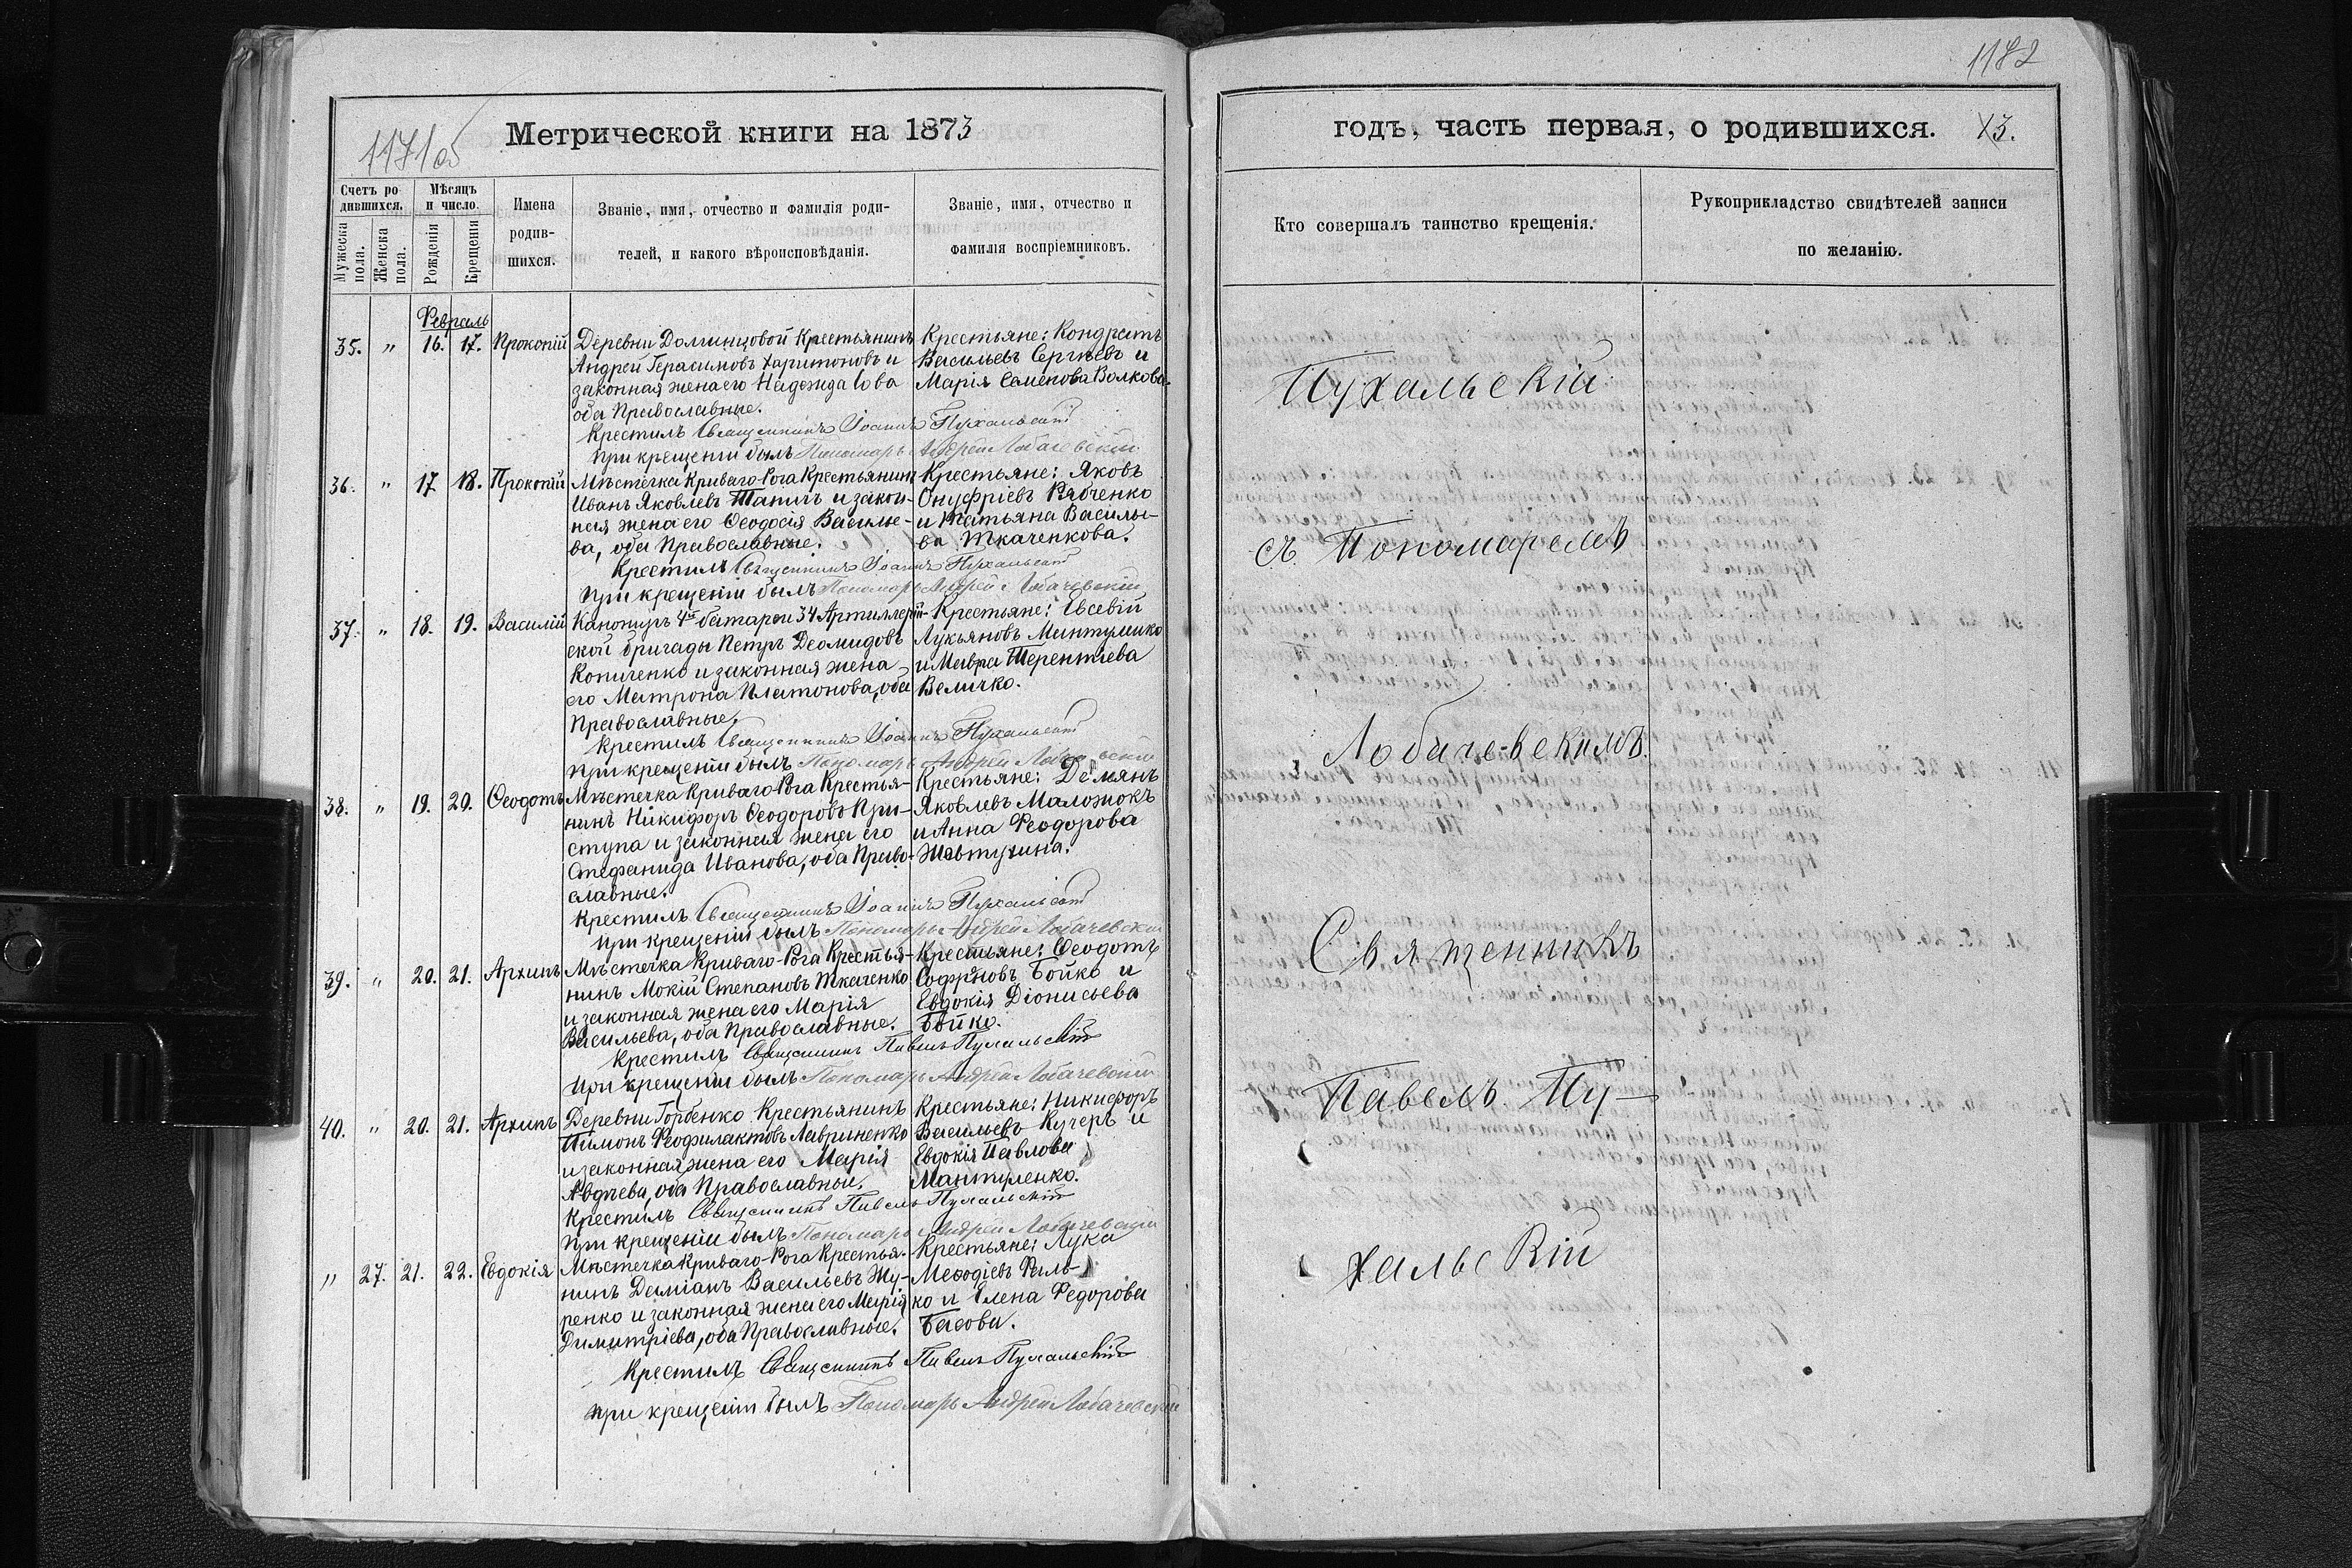 1171об
Метрической книги на 1873
Счетъ ро
дившихся.
Мужеска
пола.
Женска
пола.
Мѣсяцъ
и число.
Рожденія
Крещенія
Имена
родив-
шихся.
Званіе, имя, отчество и фамилія роди-
телей, и какого вѣроисповѣданія.
Званіе, имя, отчество и
фамилія воспріемниковъ.
Февраль
35. " 16. 17. Прокопій
Деревни Долинцовой Крестьянинъ
Андрей Герасимовъ Харитоновъ и
законная жена его Надежда
оба Православные.
Крестьяне: Кондратъ
Васильевъ Сергѣевъ и
Марія Семенова Волкова.
Крестилъ Священникъ Іоаннъ Пухальскій
При крещеніи былъ Пономарь Андрей Лобачевскій
36. " 17 18. Прокопій
Мѣстечка Криваго-Рога Крестьянинъ
Иванъ Яковлевъ и закон-
ная жена его Ѳеодосія Василье-
ва, оба Православные.
Крестьяне: Яковъ
Онуфріевъ Рябченко
и Татьяна Василье-
ва Ткаченкова.
Крестилъ Священникъ Іоаннъ Пухальскій
При крещеніи былъ Пономарь Андрей Лобачевскій
37. " 18. 19. Василій
Канониръ 4й батареи 34 Артиллерій-
ской бригады Петръ Деомидовъ
Копиченко и законная жена
его Матрона Платонова, оба
Православные.
Крестьяне: Евсевій
Лукьяновъ
и Мавра Терентіева
Величко.
Крестилъ Священникъ Іоаннъ Пухальскій
При крещеніи былъ Пономарь Андрей Лобачевскій
38. " 19. 20. Ѳеодотъ
Мѣстечка Криваго-Рога Крестья-
нинъ Никифоръ Ѳеодоровъ При-
ступа и законная жена его
Стефанида Иванова, оба Право-
славные.
Крестьяне: Демянъ
Яковлевъ Маложокъ
и Анна Феодорова
Жовтухина.
Крестилъ Священникъ Іоаннъ Пухальскій
При крещеніи былъ Пономарь Андрей Лобачевскій
39. " 20. 21. Архипъ
Мѣстечка Криваго-Рога Крестья-
нинъ Мокій Степановъ Ткаченко
и законная жена его Марія
Васильева, оба Православные.
Крестьяне: Ѳеодотъ
Софроновъ Бойко и
Евдокія Діонисьева
Бойко.
Крестилъ Священникъ Павелъ Пухальскій
При крещеніи былъ Пономарь Андрей Лобачевскій
40. " 20. 21. Архипъ
Деревни Горбенко Крестьянинъ
Пимонъ Феофилактовъ Лавриненко
и законная жена его Марія
Авдѣева, оба Православные.
Крестьяне: Никифоръ
Васильевъ Кучеръ и
Евдокія Павлова
Мантуленко.
Крестилъ Священникъ Павелъ Пухальскій
При крещеніи былъ Пономарь Андрей Лобачевскій
" 27. 21. 22. Евдокія
Мѣстечка Криваго-Рога Крестья-
нинъ Даміанъ Васильевъ Жу-
ренко и законная жена его Марія
Димитріева, оба Православные.
Крестьяне: Лука
Меѳодіевъ Галь-
ко и Елена Федорова
Басова.
Крестилъ Священникъ Павелъ Пухальскій
при крещеніи былъ Пономарь Андрей Лобачевскій
1182
годъ, часть первая, о родившихся. 13.
Кто совершалъ таинство крещенія.
Рукоприкладство свидѣтелей записи
по желанію.
Пухальскій
съ Пономаремъ
Лобачевскимъ.
Священникъ
Павелъ Пу-
хальскій